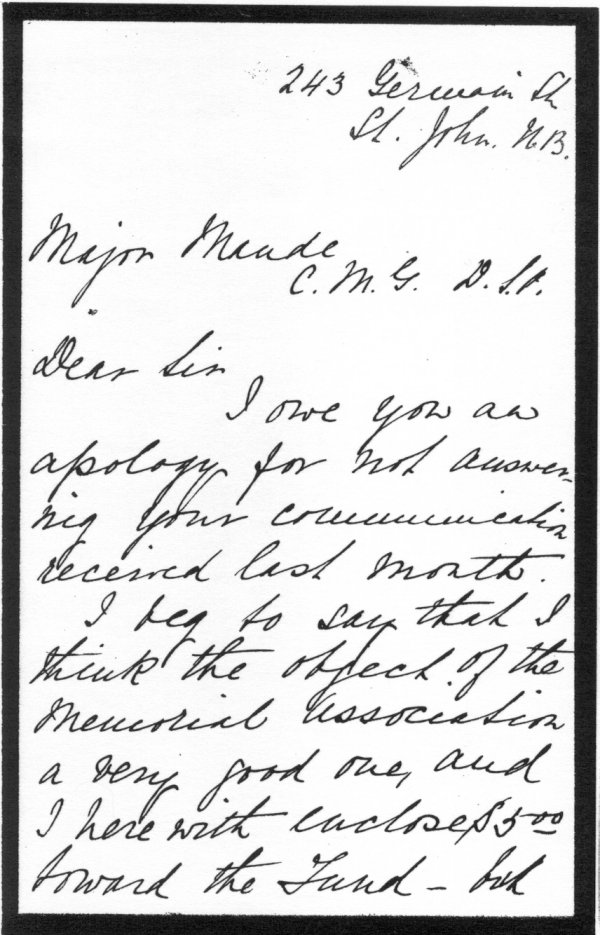 243 Germain St.
St. John. N.B.
Major Maude
C. M. G. D. S. O.
Dear Sir
I owe you an
apology for not answer-
ing your communication
received last month.
I beg to say that I
think the object of the
Memorial Association
a very good one, and
I here with enclose $5.00
toward the Fund - but